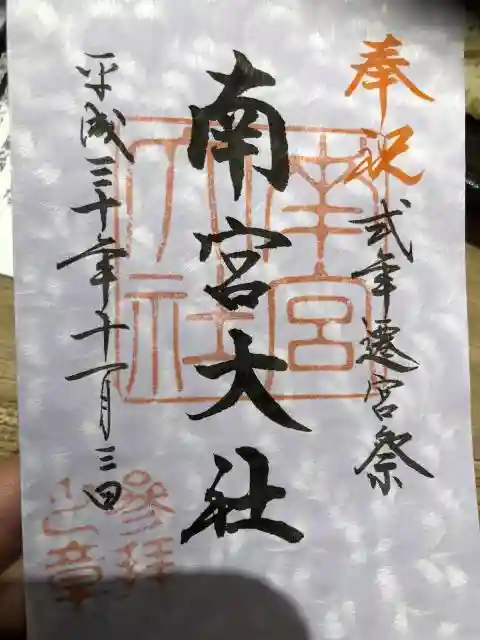 奉祝
式年遷宮祭
南宮大社
平成三十年十一月三日
南宮
大社
参拝
之章